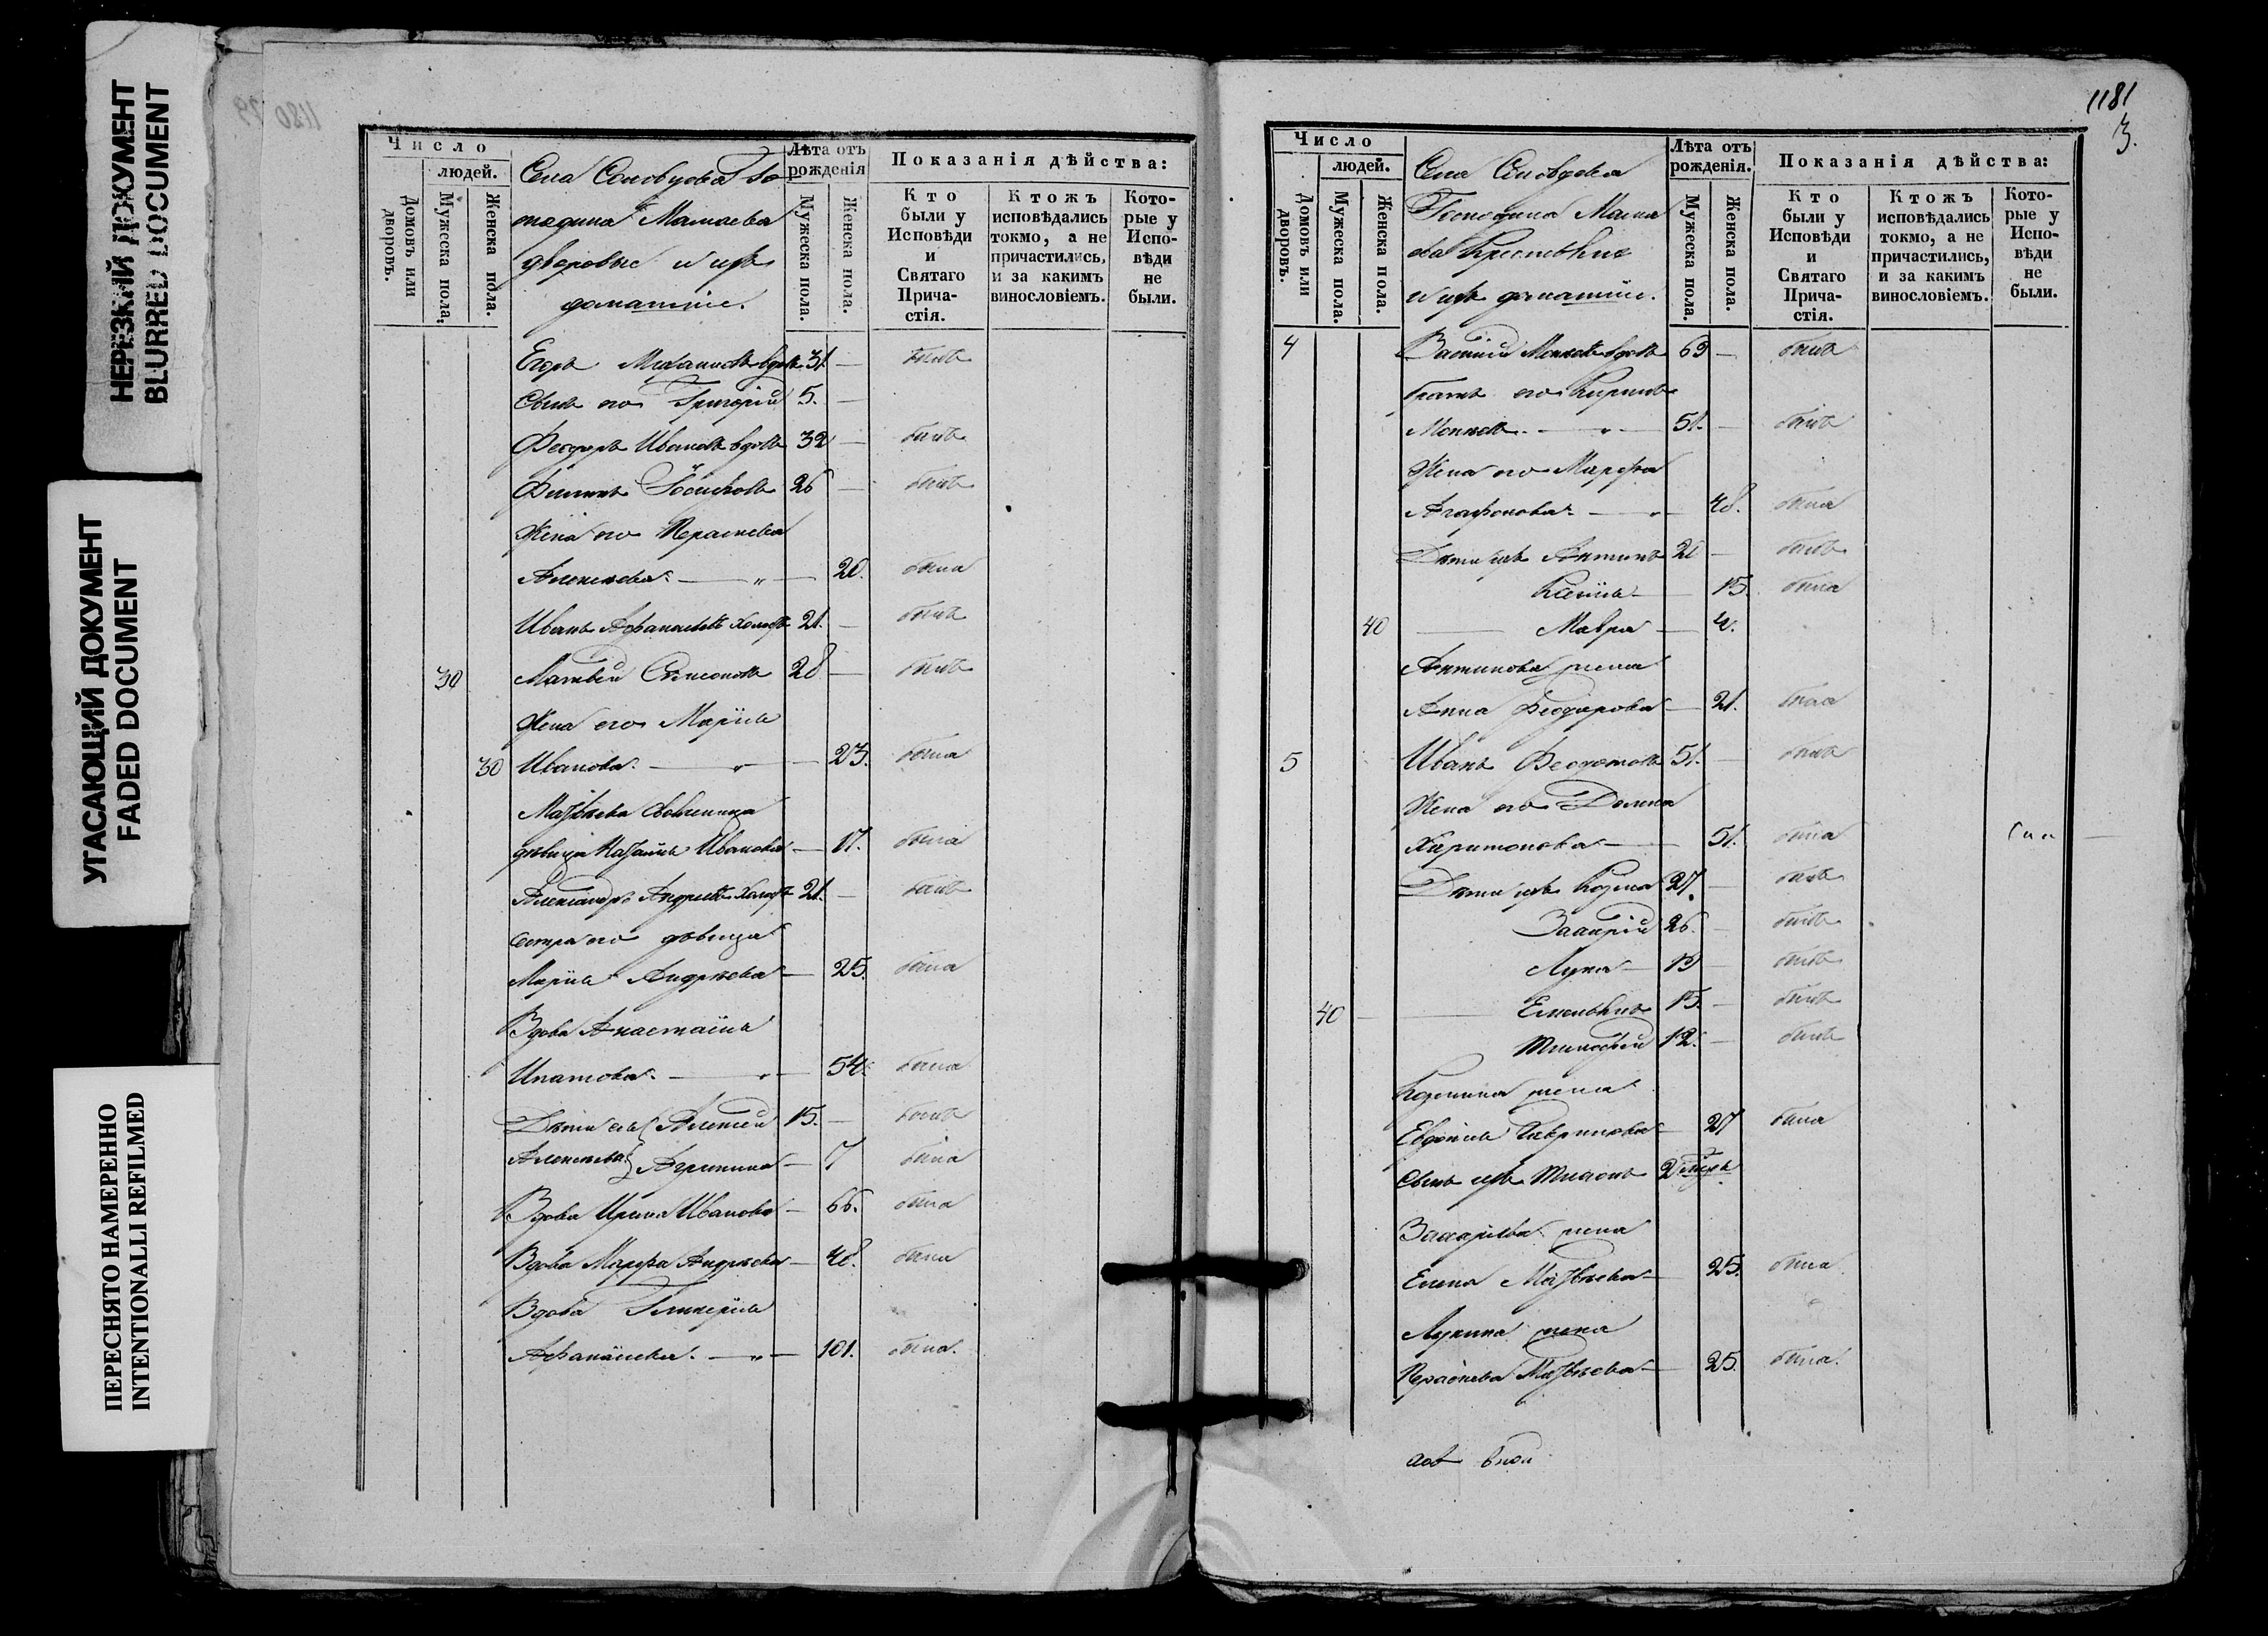 НЕРЕЗКИЙ ДОКУМЕНТ
BLURRED DOCUMENT
УГАСАЮЩИЙ ДОКУМЕНТ
FADED DOCUMENT
ПЕРЕСНЯТО НАМЕРЕННО
INTENTIONALLI REFILMED
1180
Число
людей.
Домовъ или дворовъ.
Мужеска пола.
Женска пола.
Села Соловцова Го
сподина Мамаева
дворовые и ихъ
домашніе.
Лѣта отъ рожденія
Мужеска пола.
Женска пола.
Показанія дѣйства:
Кто были у Исповѣди и Святаго Причастія.
Ктожъ исповѣдались токмо, а не причастились, и за какимъ винословіемъ.
Которые у Исповѣди не были.
Егоръ Михаиловъ вдовъ 31 — былъ
Сынъ его Григорій 5. —
Феодоръ Ивановъ вдовъ 32 — былъ
Филиппъ 26 — былъ
Жена его Параскева
Алексѣева — " — 20. была
Иванъ Афанасьевъ холостъ 21. — былъ
30 Матвей Симеоновъ 28 — былъ
Жена его Марія
30 Иванова — " — 23. была
Матвѣева свояченица
дѣвица Наталія Иванова — 17. была
Александръ Андреевъ холостъ 21. — былъ
сестра его дѣвица
Марія Андрѣева — 25. была
Вдова Анастасія
Ипатова — " — 54. была
Дѣти ея Алексей 15. — былъ
Алексѣевы Агрипина — 7 была
Вдова Ирина Иванова — 66. была
Вдова Марфа Андрѣева — 48. была
Вдова Гликерія
Афанасіева — " — 101. была.
1181
3.
Число
людей.
Домовъ или дворовъ.
Мужеска пола.
Женска пола.
Села Соловцова
Господина Мама
ева Крестьяне
и ихъ домашніе.
Лѣта отъ рожденія.
Мужеска пола.
Женска пола.
Показанія дѣйства:
Кто были у Исповѣди и Святаго Причастія.
Ктожъ исповѣдались токмо, а не причастились, и за какимъ винословіемъ.
Которые у Исповѣди не были.
4 Василій Моисеевъ вдовъ 63 — былъ
братъ его Кирилъ
Моисеевъ — " — 51. — былъ
Жена его Марфа
Агафонова — " — 48. была
Дѣти ихъ Антипъ 20 — былъ
Ксенія — 15. была
40 — Мавра — 4.
Антипова жена
Анна Феодорова — 21. была
5 Иванъ Феодотовъ 51. — былъ
Жена его Домна
Харитонова — 51. была
Дѣти ихъ Козма 27. — былъ
Захарій 26. — былъ
Лука — 19 — былъ
40 — Емельянъ 15. — былъ
Тимофей 12. — былъ
Козмина жена
Евдокія Гаврилова — 27 была
Сынъ ихъ 2
Захарьева жена
Елена Матвѣева — 25. была
Лукина жена
Параскева Матвѣева — 25. была.